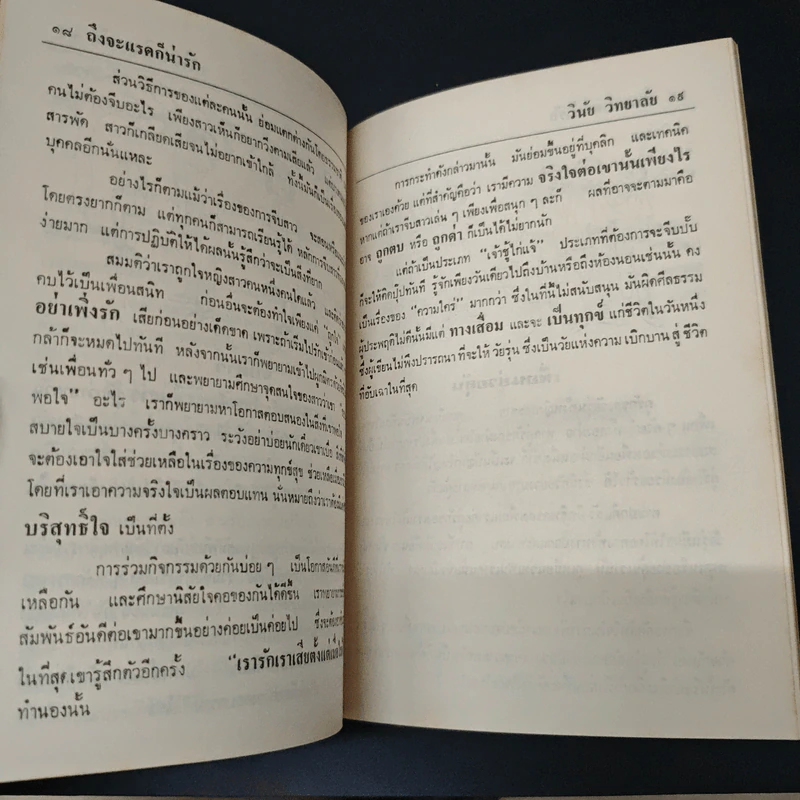 ๑๘ ถึงจะแรดก็น่ารัก
ส่วนวิธีการของแต่ละคนนั้น ย่อมแตกต่างกันโดย
คนไม่ต้องจีบอะไร เพียงสาวเห็นก็อยากวิ่งตามเสียแล้ว
สารพัด สาวก็เกลียดเสียจนไม่อยากเข้าใกล้ ทั้งนี้มันก็เป็นเรื่อง
บุคคลอีกนั่นแหละ
อย่างไรก็ตามแม้ว่าเรื่องของการจีบสาว จะสอน
โดยตรงยากก็ตาม แต่ทุกคนก็สามารถเรียนรู้ได้ หลักการ
ง่ายมาก แต่การปฏิบัติให้ได้ผลนั้นรู้สึกว่าจะเป็นสิ่งที่ยาก
สมมติว่าเราถูกใจหญิงสาวคนหนึ่งคนใดแล้ว และ
คบไว้เป็นเพื่อนสนิท ก่อนอื่นจะต้องทำใจเพียงแค่ "ถูกใจ"
อย่าเพิ่งรัก เสียก่อนอย่างเด็ดขาด เพราะถ้าเริ่มไปรักเข้า
กล้าก็จะหมดไปทันที หลังจากนั้นเราก็พยายามเข้าไปผูกมิตร
เช่นเพื่อนทั่ว ๆ ไป และพยายามศึกษาจุดสนใจของสาวว่าเขา
พอใจ" อะไร เราก็พยายามหาโอกาสตอบสนองในสิ่งที่เขา
สบายใจเป็นบางครั้งบางคราว ระวังอย่าบ่อยนักเดี๋ยวเขาเบื่อ
จะต้องเอาใจใส่ช่วยเหลือในเรื่องของความทุกข์สุข ช่วยเหลือ
โดยที่เราเอาความจริงใจเป็นผลตอบแทน นั่นหมายถึงว่าเรา
บริสุทธิ์ใจ เป็นที่ตั้ง
การร่วมกิจกรรมด้วยกันบ่อย ๆ เป็นโอกาสอันดี
เหลือกัน และศึกษานิสัยใจคอของกันได้ดีขึ้น เราพยายาม
สัมพันธ์อันดีต่อเขามากขึ้นอย่างค่อยเป็นค่อยไป ซึ่งจะต้อง
ในที่สุดเขารู้สึกตัวอีกครั้ง "เรารักเราเสียตั้งแต่เมื่อ
ทำนองนั้น
วินัย วิทยาลัย ๑๙
การกระทำดังกล่าวมานั้น มันย่อมขึ้นอยู่ที่บุคลิก และเทคนิค
ของเราเองด้วย แต่ที่สำคัญคือว่า เรามีความ จริงใจต่อเขานั้นเพียงไร
หากแต่ถ้าเราจีบสาวเล่น ๆ เพียงเพื่อสนุก ๆ ละก็ ผลที่อาจจะตามมาคือ
อาจ ถูกตบ หรือ ถูกด่า ก็เป็นได้ไม่ยากนัก
แต่ถ้าเป็นประเภท "เจ้าชู้ไก่แจ้" ประเภทที่ต้องการจะจีบปั๊บ
ก็จะให้ติดปุ๊ปทันที รู้จักเพียงวันเดียวไปถึงบ้านหรือถึงห้องนอนเช่นนั้น คง
เป็นเรื่องของ "ความใคร่" มากกว่า ซึ่งในที่นี้ไม่สนับสนุน มันผิดศีลธรรม
ผู้ประพฤติไม่ดีนั้นมีแต่ ทางเสื่อม และจะ เป็นทุกข์ แก่ชีวิตในวันหนึ่ง
ซึ่งผู้เขียนไม่พึงปรารถนาที่จะให้ วัยรุ่น ซึ่งเป็นวัยแห่งความ เบิกบาน สู่ ชีวิต
ที่อับเฉาในที่สุด